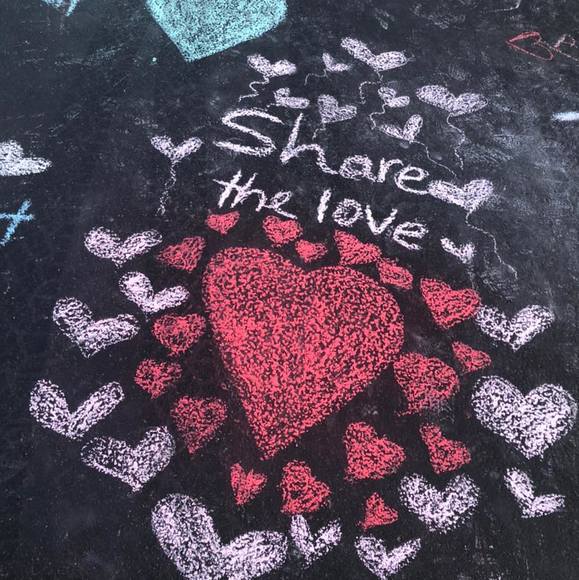 Share
the love